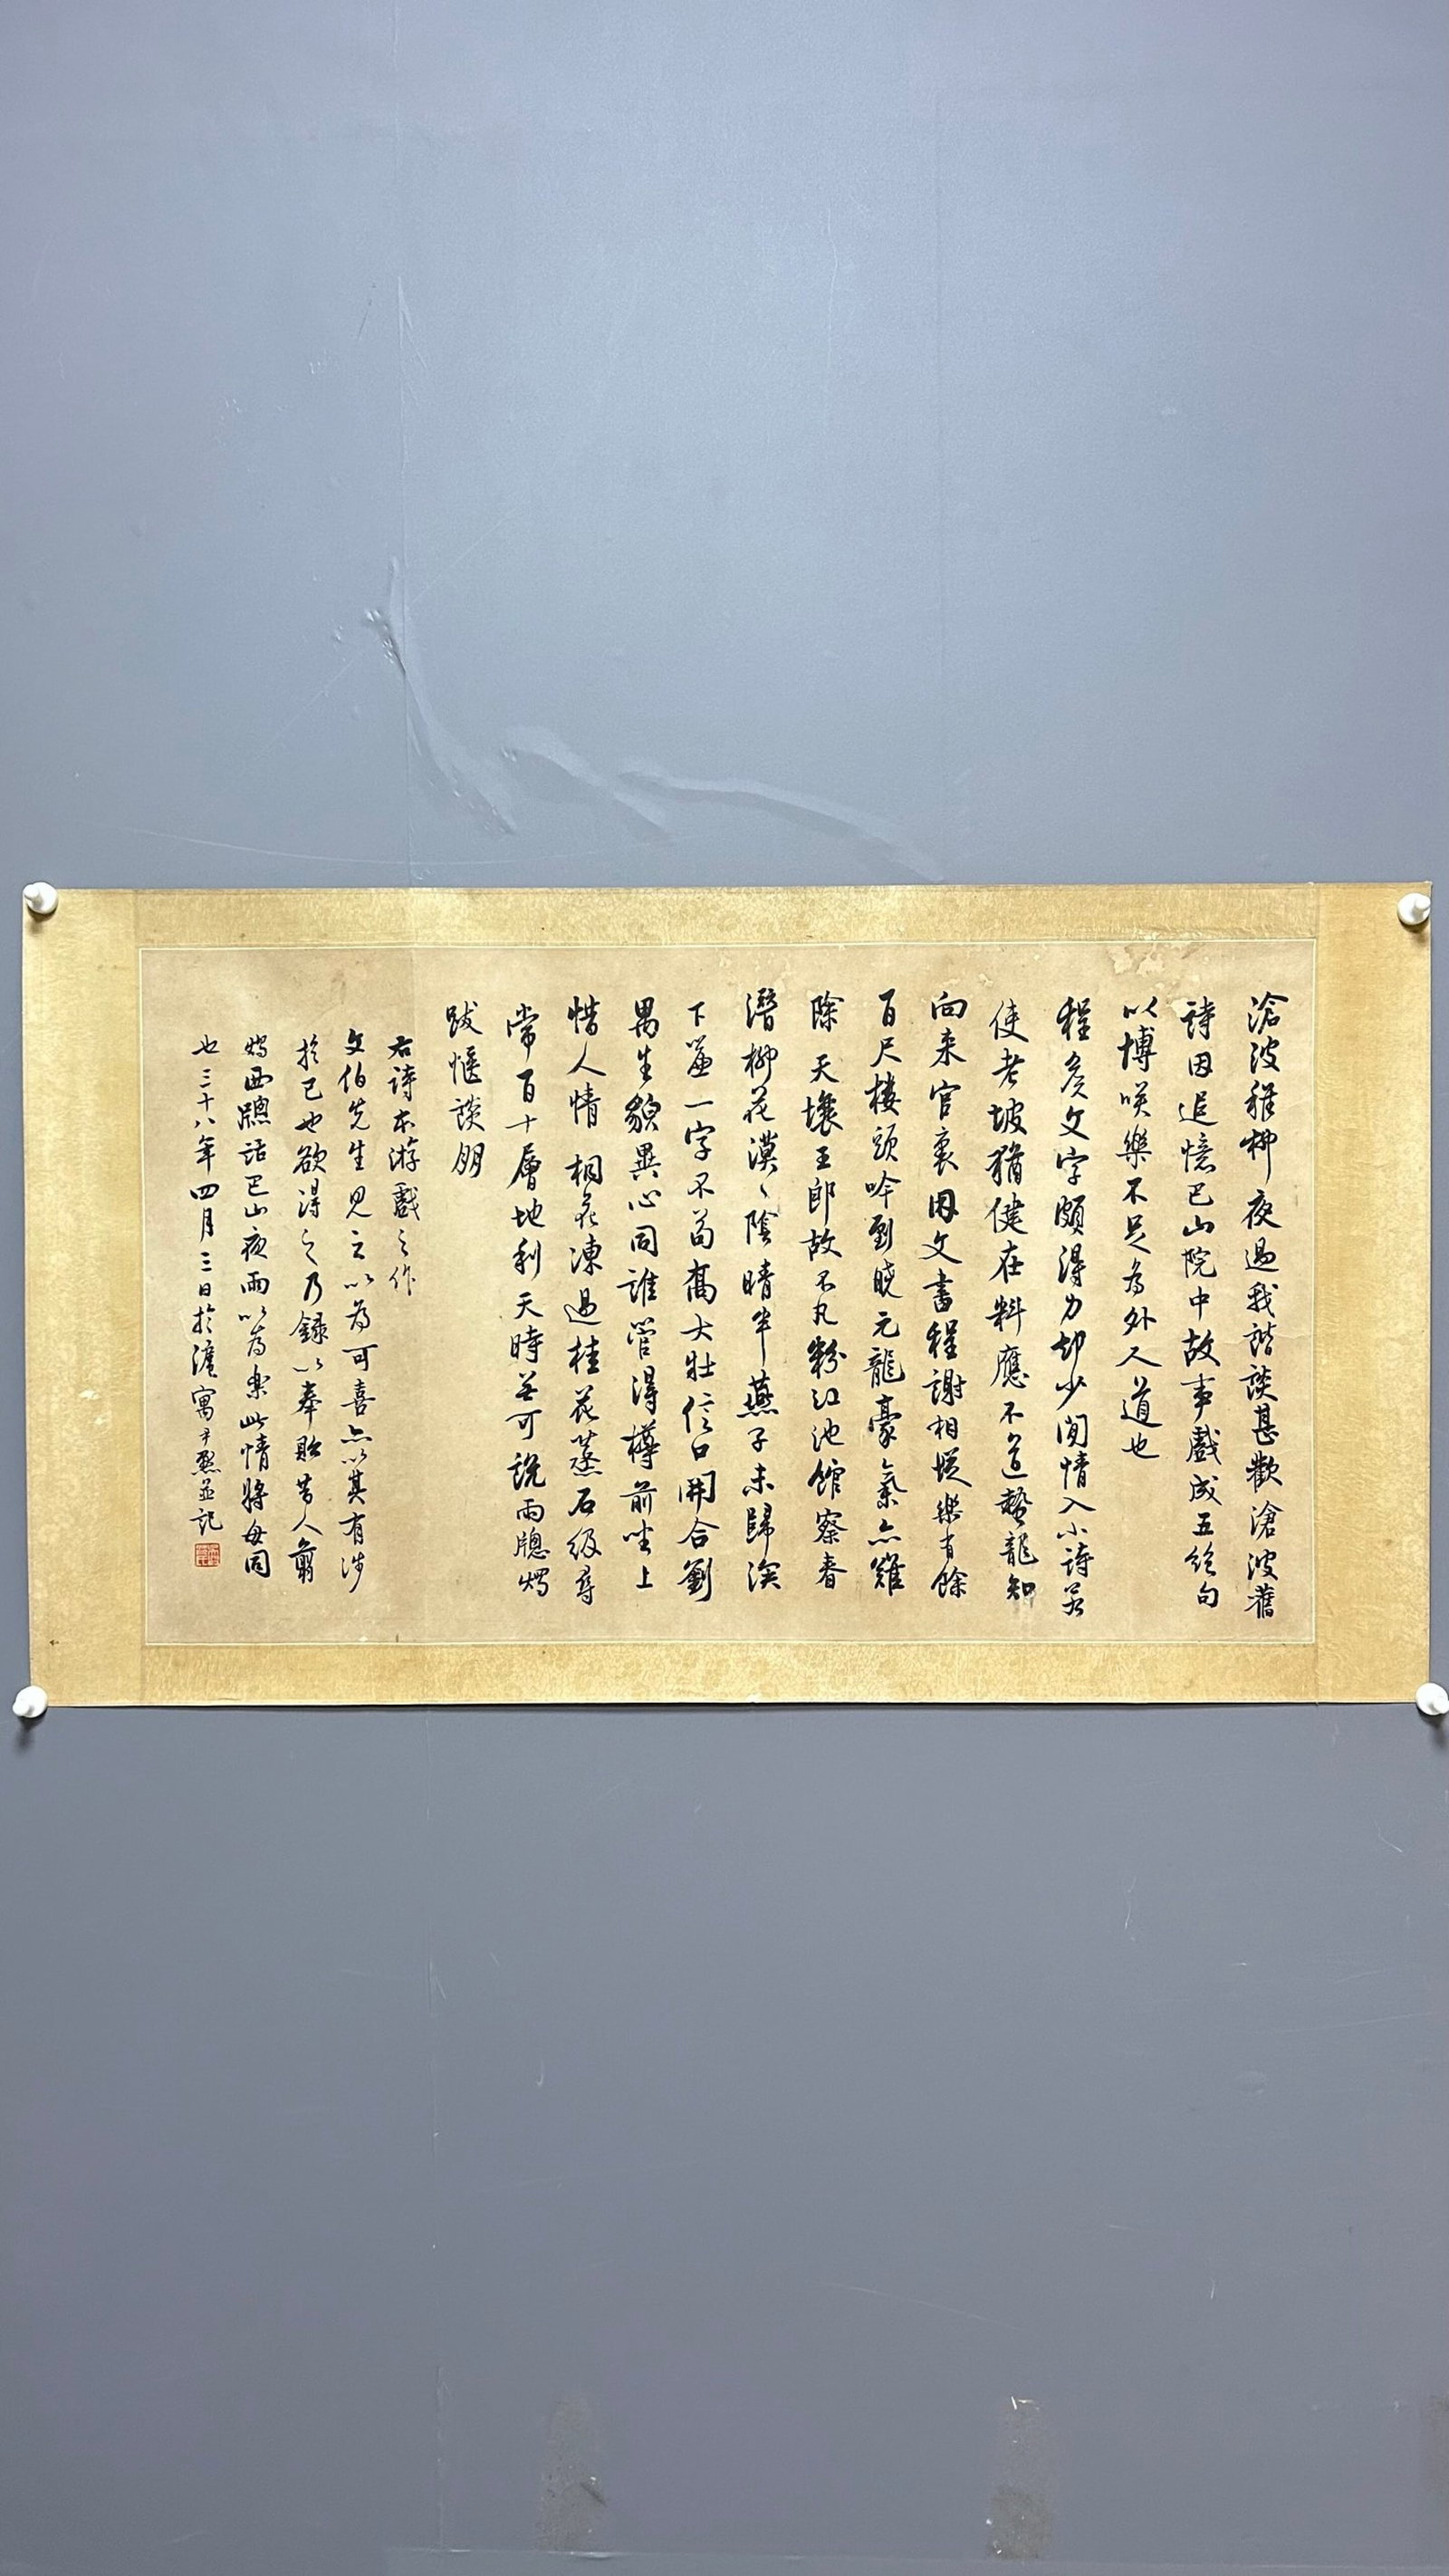 滄波稚柳夜過我諧談甚歡滄波舊
詩因追憶巴山院中故事戲成五絕句
以博咲樂不足為外人道也
程彥文字頗得力却少閒情入小詩若
使老坡猶健在料應不道蟄龍知
向来官裏困文書程謝相從樂有餘
百尺樓頭吟到曉元龍豪氣亦難
除 天壤王郎故不凡粉江池館察春
潛柳花漠〻陰晴半燕子未歸深
下簾 一字不苟高大壯信口開合劉
禺生貌異心同誰管得樽前坐上
惜人情 桐花凍過桂花蒸石級尋
常百十層地利天時並可說雨牕燭
跋愜談朋
右詩本游戲之作
文伯先生見之以為可喜亦以其有涉
於己也欲得之乃錄以奉貽昔人翦
燭西牕話巴山夜雨以為樂此情將毋同
也三十八年四月三日於滬寓尹默並記